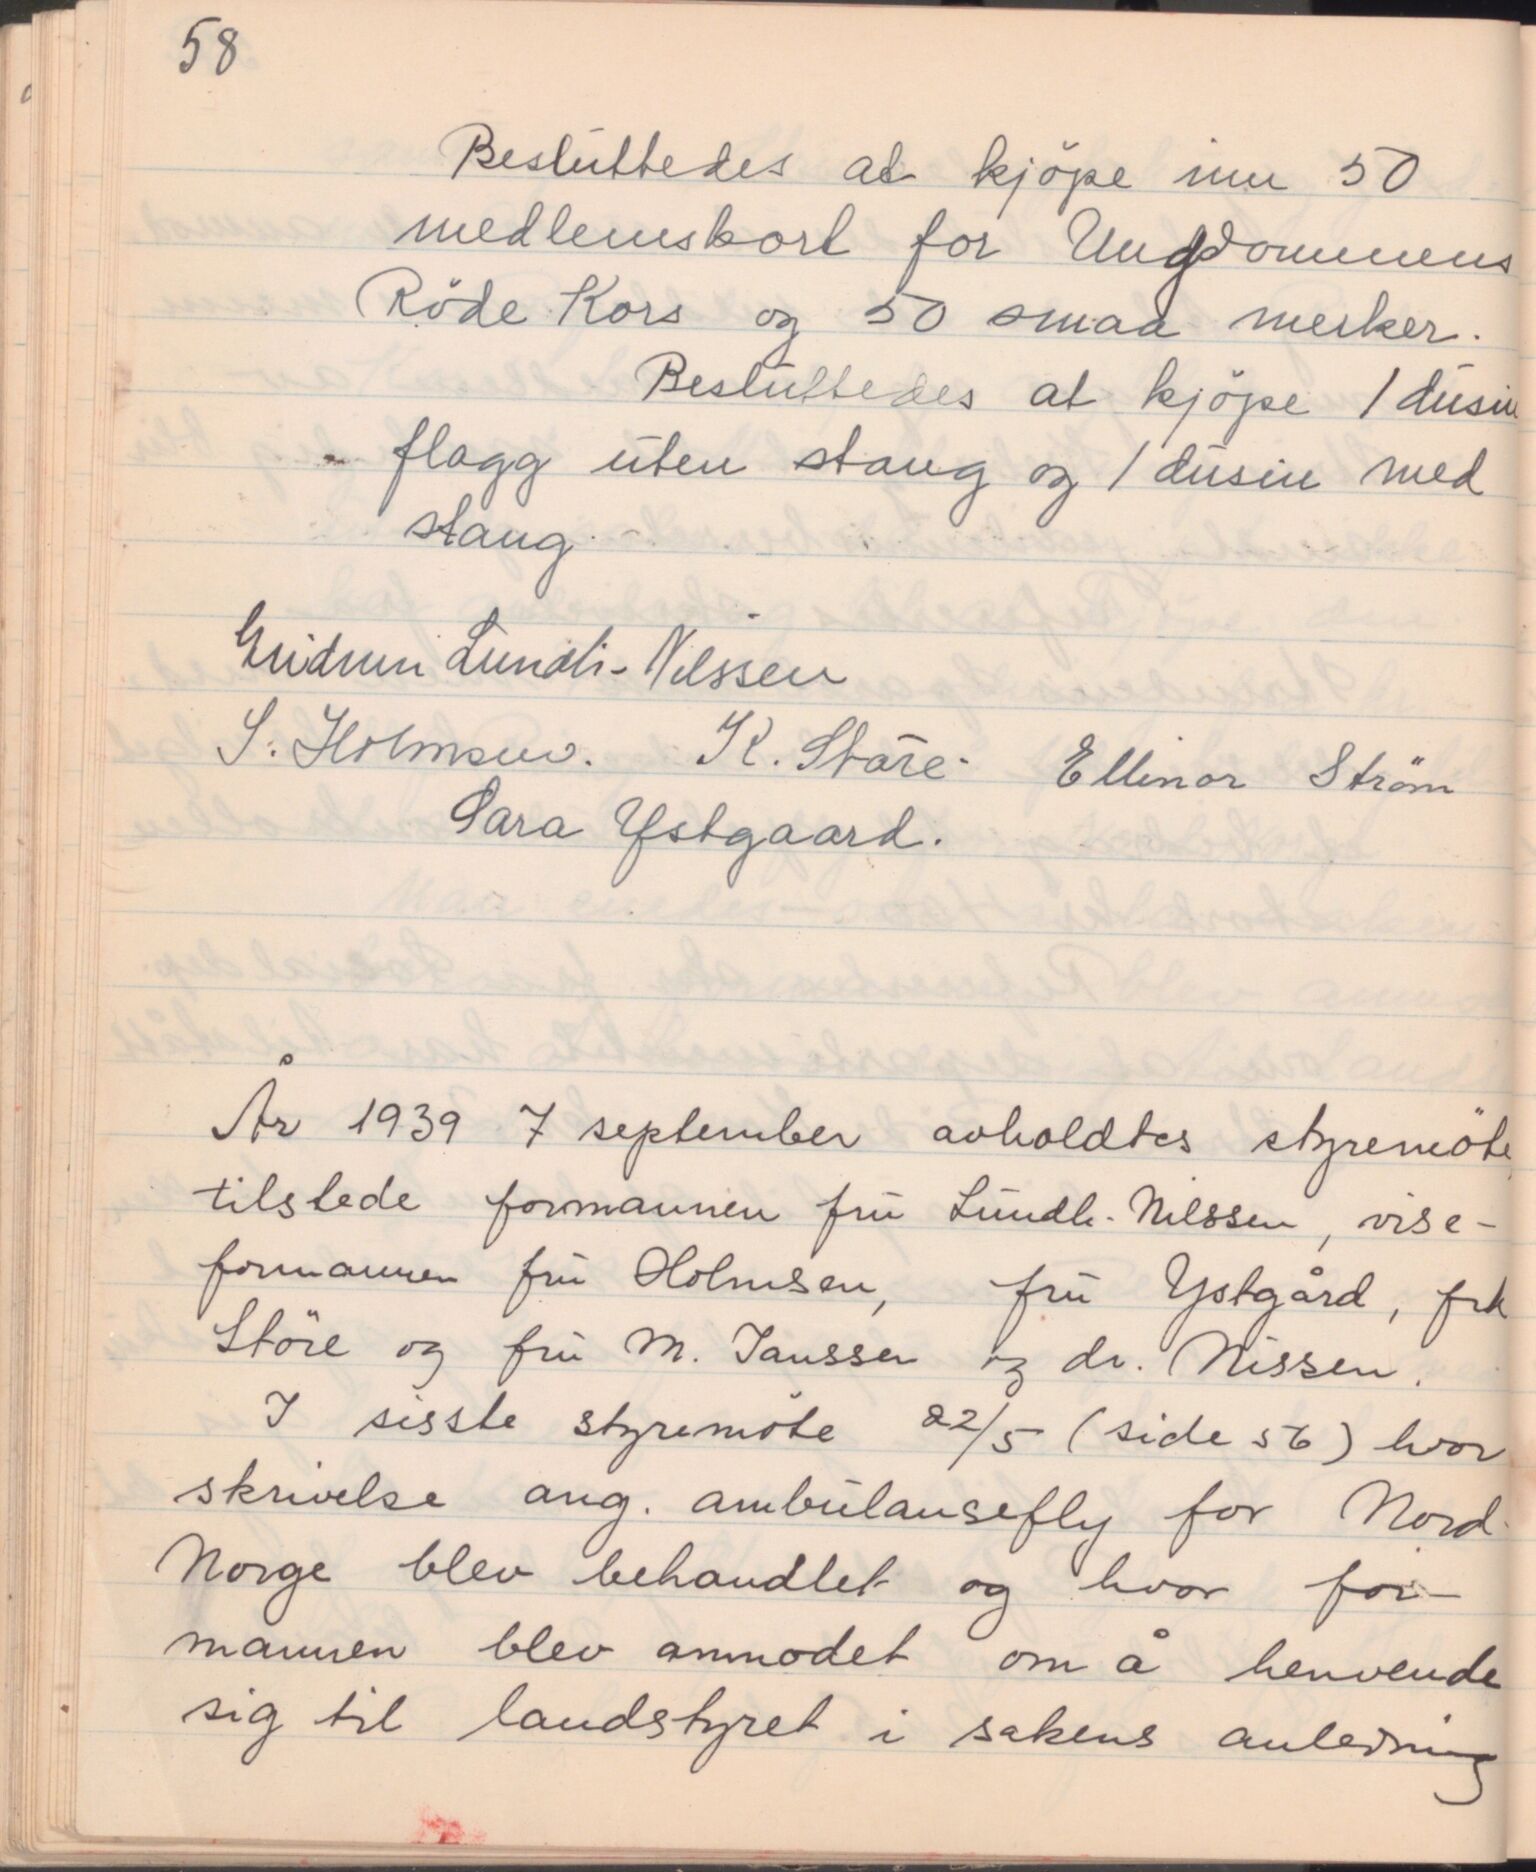 58
Besluttedes at kjöpe inn 50
medlemskort for Ungdommens
Röde Kors og 50 smaa merker.
Besluttedes at kjöpe 1 dusin
flagg uten stang og 1 dusin med
stang.
Gudrun Lundh-Nilssen
S. Holmsen. K. Störe. Ellinor Ström
Sara Ystgaard.
År 1939 7 september avholdtes styremöte
tilstede formannen fru Lundh-Nilssen, vise-
formannen fru Holmsen, fru Ystgård, frk
Störe og fru M. Janssen og dr. Nissen.
I sisste styremöte 22/5 (side 56) hvor
skrivelse ang. ambulansefly for Nord-
Norge blev behandlet og hvor for-
mannen blev anmodet om å henvende
sig til landstyret i sakens anledning